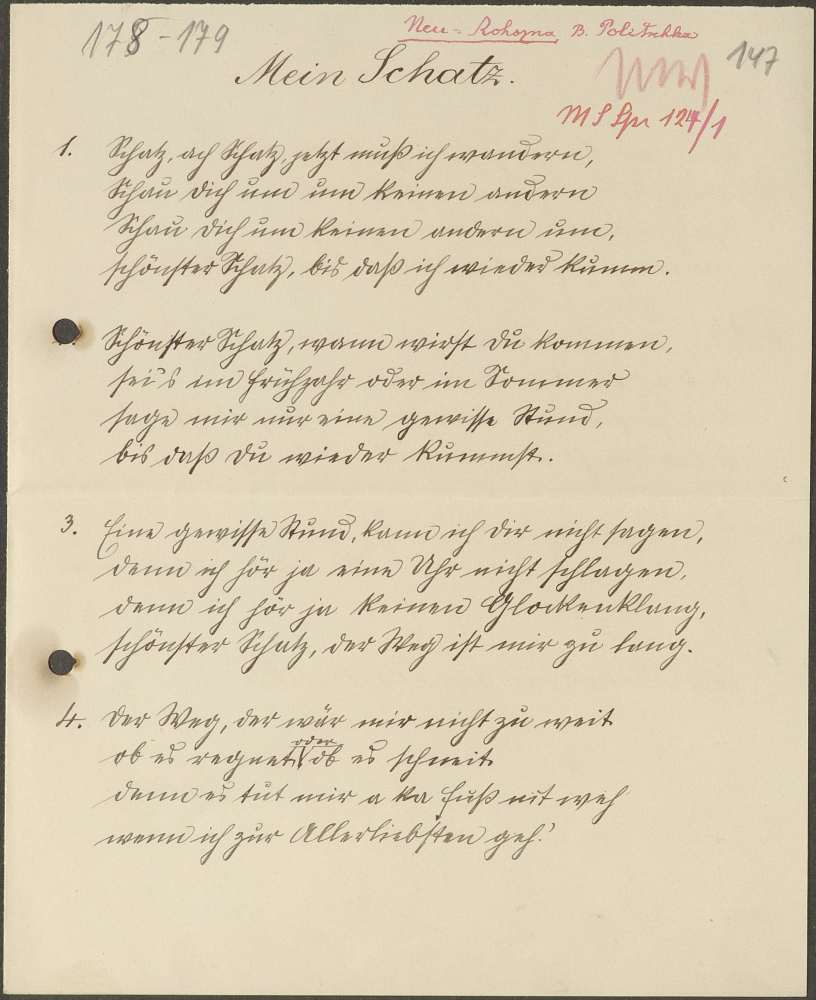 178-179
Neu-Rohozna B. Politschka
147
Mein Schatz.
1. Schatz, ach Schatz, jetzt muß ich wandern,
Schau dich um um keinen andern
Schau dich um keinen andern um,
schönster Schatz, bis daß ich wieder kumm.
Schönster Schatz, wann wirst du kommen,
sei's im Frühjahr oder im Sommer
sage mir nur eine gewisse Stund,
bis daß du wieder kummst.
3. Eine gewisse Stund, kann ich dir nicht sagen,
denn ich hör ja eine Uhr nicht schlagen,
denn ich hör ja keinen Glockenklang,
schönster Schatz, der Weg ist mir zu lang.
4. Der Weg, der wär mir nicht zu weit
ob es regnet oder ob es schneit
denn es tut mir a ka Fuß nit weh
wenn ich zur Allerliebsten geh!